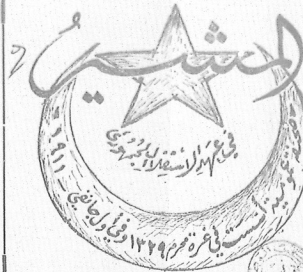 المشير
في عهد الاستقلال الجمهوري
عمومية أسست في غرة محرم ١٣٢٩ وفي أول جانفي 1911